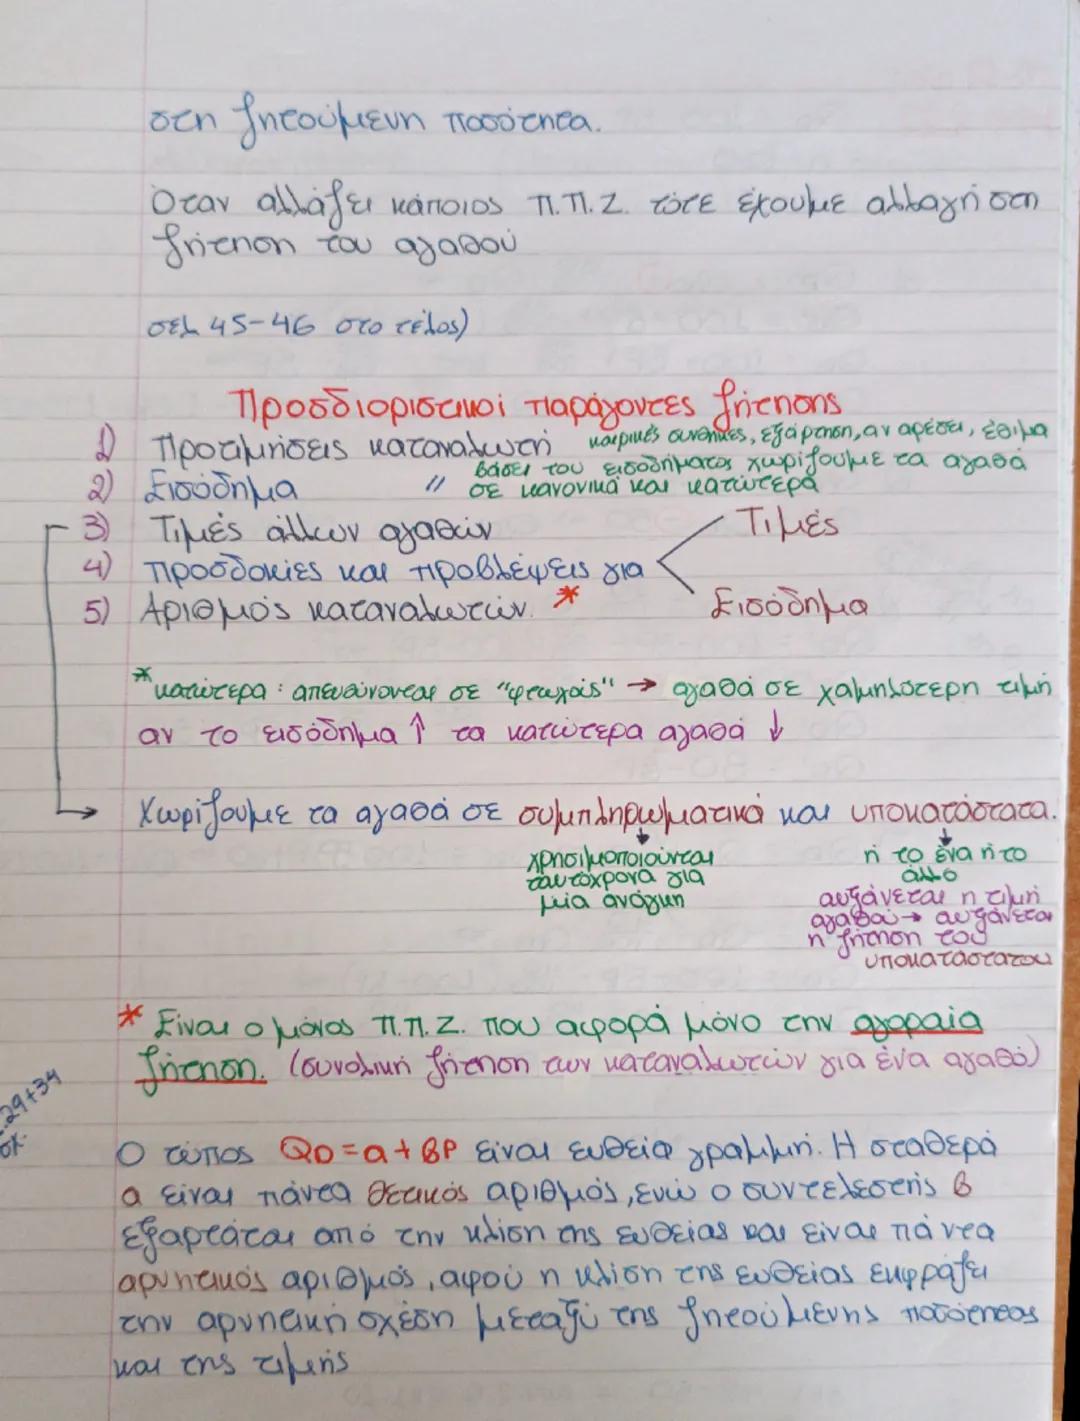 στη ζητούμενη ποσότητα.
Όταν αλλάξει κάποιος Π.Π.Ζ. τότε έχουμε αλλαγή στη
ζήτηση του αγαθού
σελ 45-46 στο τέλος)
Προσδιοριστικοί παράγοντες ζήτησης
1) Προτιμήσεις καταναλωτή καιρικές συνθήκες, εξάρτηση, αν αρέσει, έθιμα
2) Εισόδημα // βάσει του εισοδήματος χωρίζουμε τα αγαθά
σε κανονικά και κατώτερα
3) Τιμές άλλων αγαθών Τιμές
4) Προσδοκίες και προβλέψεις για
5) Αριθμός καταναλωτών. * Εισόδημα
*κατώτερα : απευθύνονται σε "φτωχούς" → αγαθά σε χαμηλότερη τιμή
αν το εισόδημα ↑ τα κατώτερα αγαθά ↓
Χωρίζουμε τα αγαθά σε συμπληρωματικά και υποκατάστατα.
χρησιμοποιούνται
ταυτόχρονα για
μία ανάγκη
ή το ένα ή το
άλλο
αυξάνεται η τιμή
αγαθού → αυξάνεται
η ζήτηση του
υποκατάστατου
* Είναι ο μόνος Π.Π.Ζ. που αφορά μόνο την αγοραία
ζήτηση. (συνολική ζήτηση των καταναλωτών για ένα αγαθό)
29+34
Ο τύπος QD = α + βP είναι ευθεία γραμμή. Η σταθερά
α είναι πάντα θετικός αριθμός, ενώ ο συντελεστής β
εξαρτάται από την κλίση της ευθείας και είναι πάντα
αρνητικός αριθμός, αφού η κλίση της ευθείας εκφράζει
την αρνητική σχέση μεταξύ της ζητούμενης ποσότητας
και της τιμής